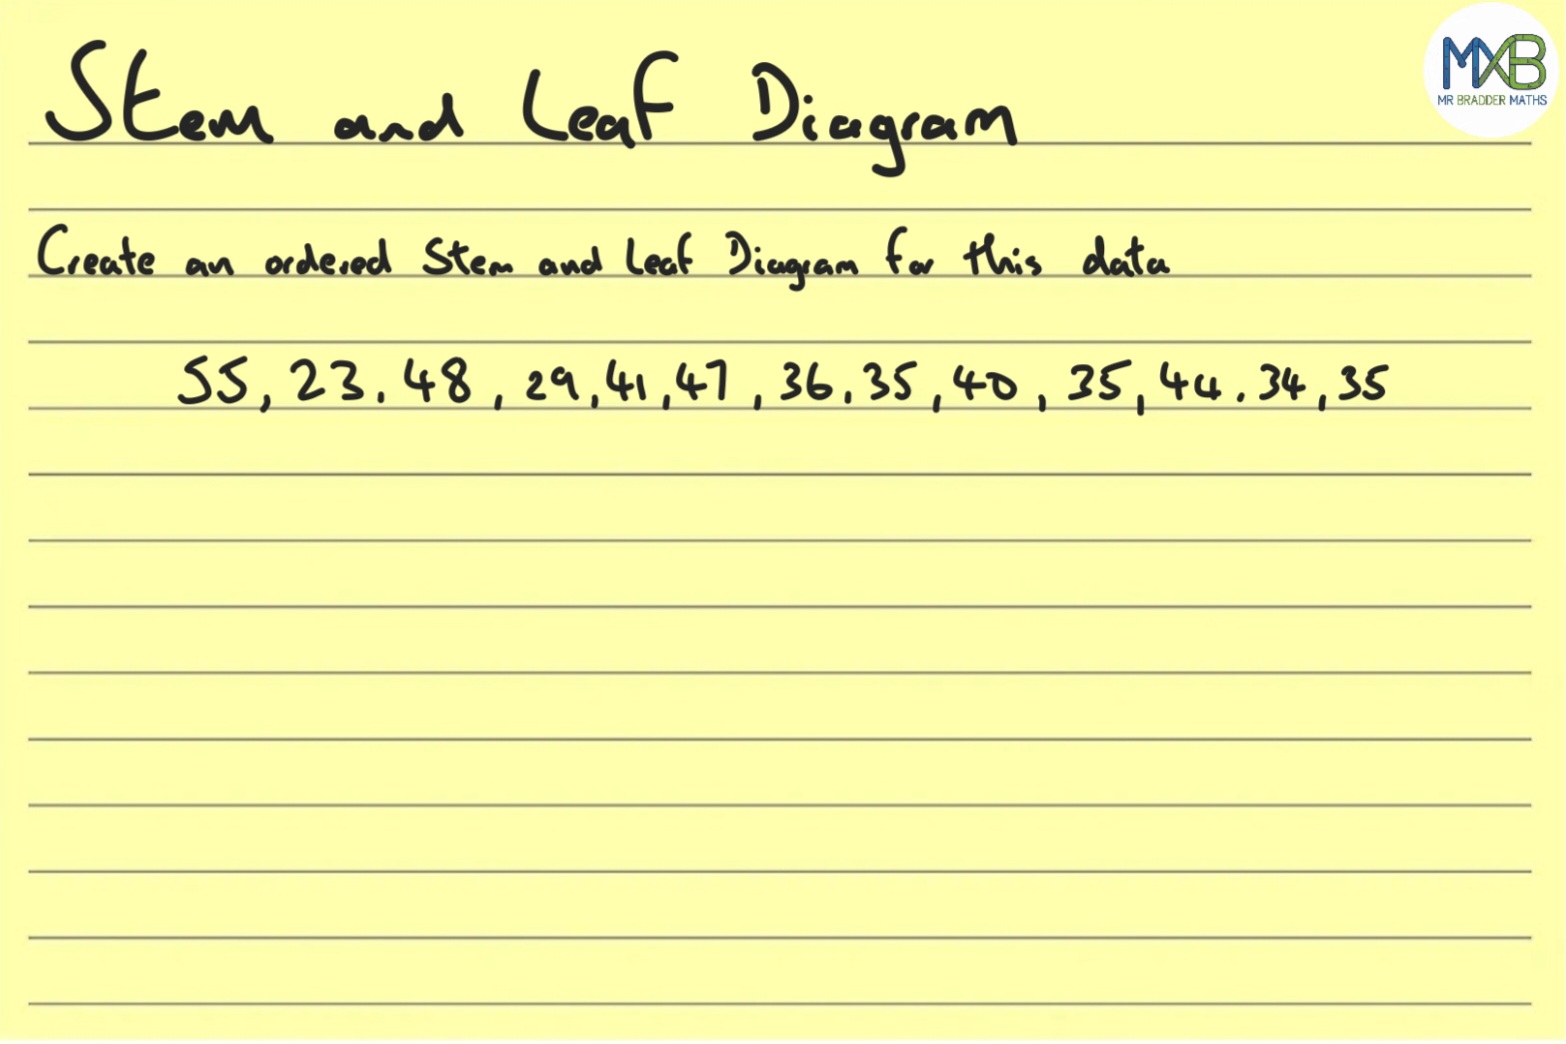 Stem and Leaf Diagram
MXB
MR BRADDER MATHS
Create an ordered Stem and Leaf Diagram for this data
55, 23. 48, 29, 41, 47, 36. 35, 40, 35, 44. 34, 35